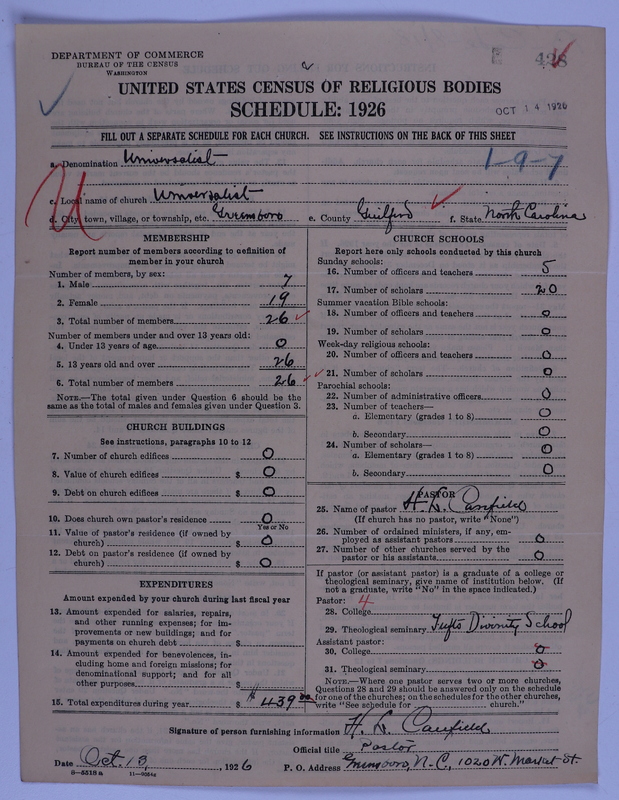 DEPARTMENT OF COMMERCE
BUREAU OF THE CENSUS
WASHINGTON
428
UNITED STATES CENSUS OF RELIGIOUS BODIES
SCHEDULE: 1926
OCT 14 1926
FILL OUT A SEPARATE SCHEDULE FOR EACH CHURCH. SEE INSTRUCTIONS ON THE BACK OF THIS SHEET
a. Denomination Universalist
1-9-7
U
c. Local name of church Universalist
d. City, town, village, or township, etc. Greensboro e. County Guilford f. State North Carolina
MEMBERSHIP
Report number of members according to definition of
member in your church
Number of members, by sex:
1. Male 7
2. Female 19
3. Total number of members 26
Number of members under and over 13 years old:
4. Under 13 years of age 0
5. 13 years old and over 26
6. Total number of members 26
NOTE.—The total given under Question 6 should be the
same as the total of males and females given under Question 3.
CHURCH BUILDINGS
See instructions, paragraphs 10 to 12
7. Number of church edifices 0
8. Value of church edifices $ 0
9. Debt on church edifices $ 0
10. Does church own pastor's residence 0
Yes or No
11. Value of pastor's residence (if owned by
church) $ 0
12. Debt on pastor's residence (if owned by
church) $ 0
EXPENDITURES
Amount expended by your church during last fiscal year
13. Amount expended for salaries, repairs,
and other running expenses; for im-
provements or new buildings; and for
payments on church debt $
14. Amount expended for benevolences, in-
cluding home and foreign missions; for
denominational support; and for all
other purposes $
15. Total expenditures during year $ 439 00
CHURCH SCHOOLS
Report here only schools conducted by this church
Sunday schools:
16. Number of officers and teachers 5
17. Number of scholars 20
Summer vacation Bible schools:
18. Number of officers and teachers 0
19. Number of scholars 0
Week-day religious schools:
20. Number of officers and teachers 0
21. Number of scholars 0
Parochial schools:
22. Number of administrative officers 0
23. Number of teachers—
a. Elementary (grades 1 to 8) 0
b. Secondary 0
24. Number of scholars—
a. Elementary (grades 1 to 8) 0
b. Secondary 0
PASTOR
25. Name of pastor H. L. Canfield
(If church has no pastor, write "None")
26. Number of ordained ministers, if any, em-
ployed as assistant pastors 0
27. Number of other churches served by the
pastor or his assistants 0
If pastor (or assistant pastor) is a graduate of a college or
theological seminary, give name of institution below. (If
not a graduate, write "No" in the space indicated.)
Pastor: 4
28. College
29. Theological seminary Tufts Divinity School
Assistant pastor:
30. College 0
31. Theological seminary 0
NOTE.—Where one pastor serves two or more churches,
Questions 28 and 29 should be answered only on the schedule
for one of the churches; on the schedules for the other churches,
write "See schedule for church."
Signature of person furnishing information H. L. Canfield
Official title Pastor
Date Oct. 13, 1926 P. O. Address Greensboro, N.C., 1020 W. Market St.
8-5518a 11-9564a